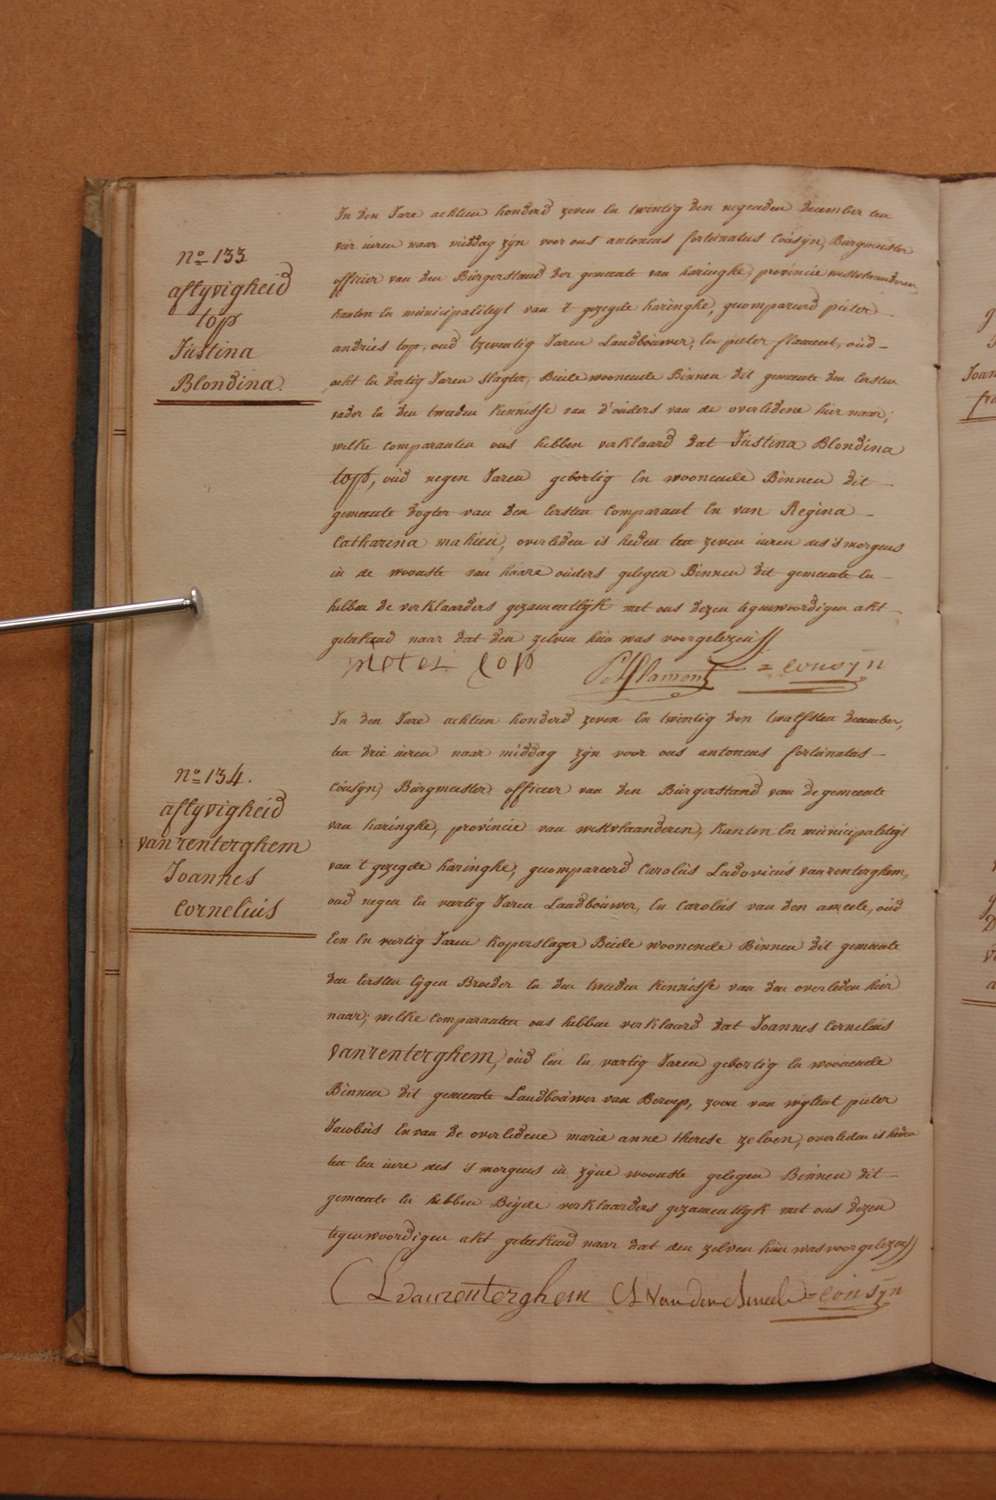 No 133
aflyvigheid
top
Justina
Blondina.
In den Jare achtien honderd zeven En twintig den negensten december ten
vier uren naar middag zijn voor ons antonius fortunatus Cousyn, Burgmeester
officier van den Burgerstand der gemeente van haringhe, provincie westvlaenderen
kanton En municipaliteyt van 't gezegde haringhe, gecompareerd pieter
andries top, oud tzeventig Jaren Landbouwer, En pieter flament, oud-
acht En dertig Jaren Slagter, Beide woonende Binnen dit gemeente den Eersten
vader En den tweeden kennisse van d'ouders van de overledene hier naar;
welke comparanten ons hebben verklaard dat Justina Blondina
top, oud negen Jaren gebortig En woonende Binnen dit
gemeente dogter van den Eersten Comparant En van Regina -
Catharina mahieu, overleden is heden ten zeven uren des 's morgens
in de woonste van haare ouders gelegen Binnen dit gemeente En -
hebben de verklaarders gezamentlijk met ons dezen tegenwoordigen akt
geteekend naar dat den zelven hun was voorgelezen//
pieter top P Flament = Cousyn
No 134.
aflyvigheid
vanrenterghem
Joannes
Cornelius
In den Jare achtien honderd zeven En twintig den twalfsten december,
ten drie uren naar middag zijn voor ons antonius fortunatus -
Cousyn, Burgmeester officier van den Burgerstand van de gemeente
van haringhe, provincie van westvlaanderen, kanton En municipaliteijt
van 't gezegde haringhe, gecompareerd Carolus Ludovicus vanrenterghem,
oud negen En vertig Jaren Landbouwer, En Carolus van den ameele, oud
Een En vertig Jaren koperslager Beide woonende Binnen dit gemeente
den Eersten Eygen Broeder En den tweeden kennisse van den overleden hier
naar; welke Comparanten ons hebben verklaard dat Joannes Cornelius
vanrenterghem, oud Een En vertig Jaren gebortig En woonende
Binnen dit gemeente Landbouwer van Beroep, zoon van wylent pieter
Jacobus En van de overledene marie anne therese zeloen, overleden is heden
ten tien ure des 's morgens in zyne woonste gelegen Binnen dit -
gemeente En hebben Beyde verklaarders gezamentlyk met ons dezen
tegenwoordigen akt geteekend naar dat den zelven hun was voorgelezen//
C L vanrenterghem C L Van den Ameele = Cousyn